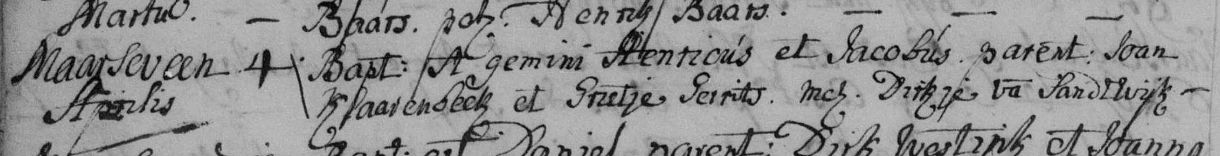 Martii. — Baars. pet. Henrik Baars. — — —
Maarseveen 4 Bapt: st gemini Henricus et Jacobus. parent: Joan
Aprilis Klaarenbeek et Grietje Gerrits. met. Dirkje va Sandtwijk —
Bapt: est Daniel parent: Dirk Westrik et Joanna